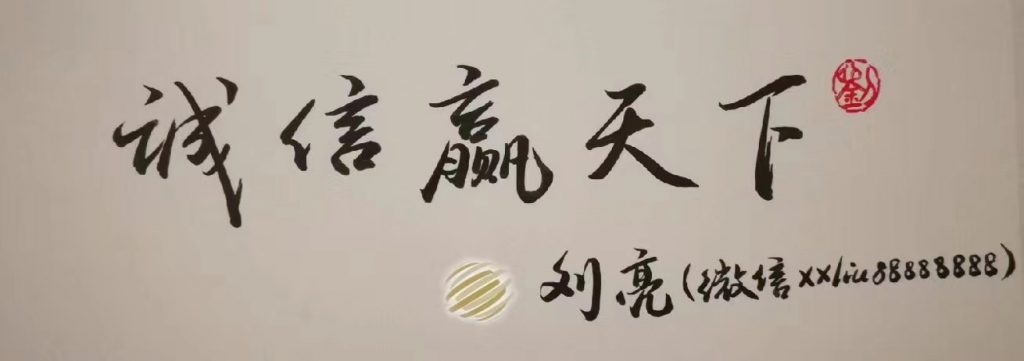 诚信赢天下
劉
刘亮(微信xxliu88888888)